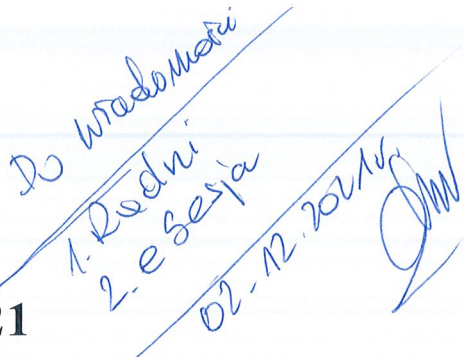 Do wiadomości
1. Radni
2. e Sesja
02-12.2021r.
21